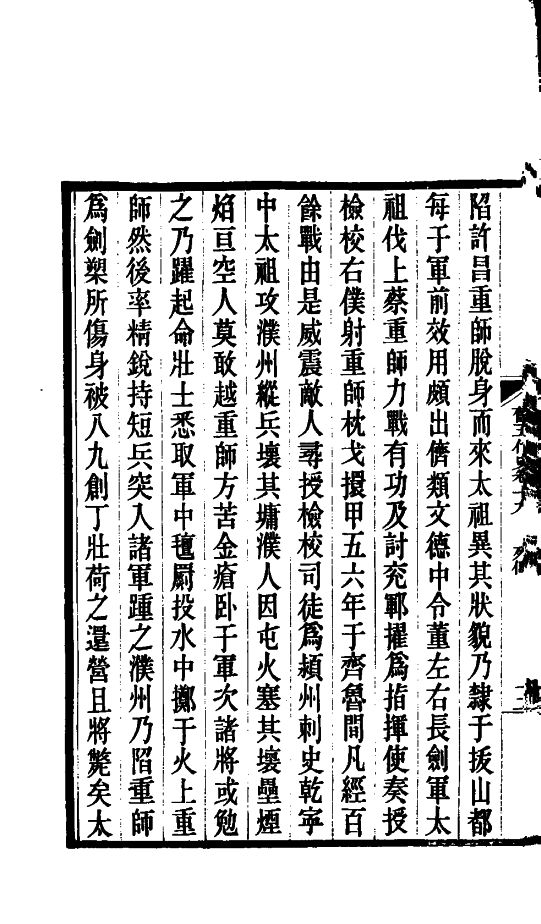 陷許昌重師脫身而來太祖異其狀貌乃隸于拔山都
每于軍前效用頗出儕類文德中令董左右長劍軍太
祖伐上蔡重師力戰有功及討兖鄆擢爲指揮使奏授
檢校右僕射重師枕戈擐甲五六年于齊魯間凡經百
餘戰由是威震敵人尋授檢校司徒爲潁州刺史乾寧
中太祖攻濮州縱兵壞其墉濮人因屯火塞其壞壘煙
焰亘空人莫敢越重師方苦金瘡卧于軍次諸將或勉
之乃躍起命壯士悉取軍中氊罽投水中擲于火上重
師然後率精銳持短兵突入諸軍踵之濮州乃陷重師
爲劍槊所傷身被八九創丁壯荷之還營且將斃矣太